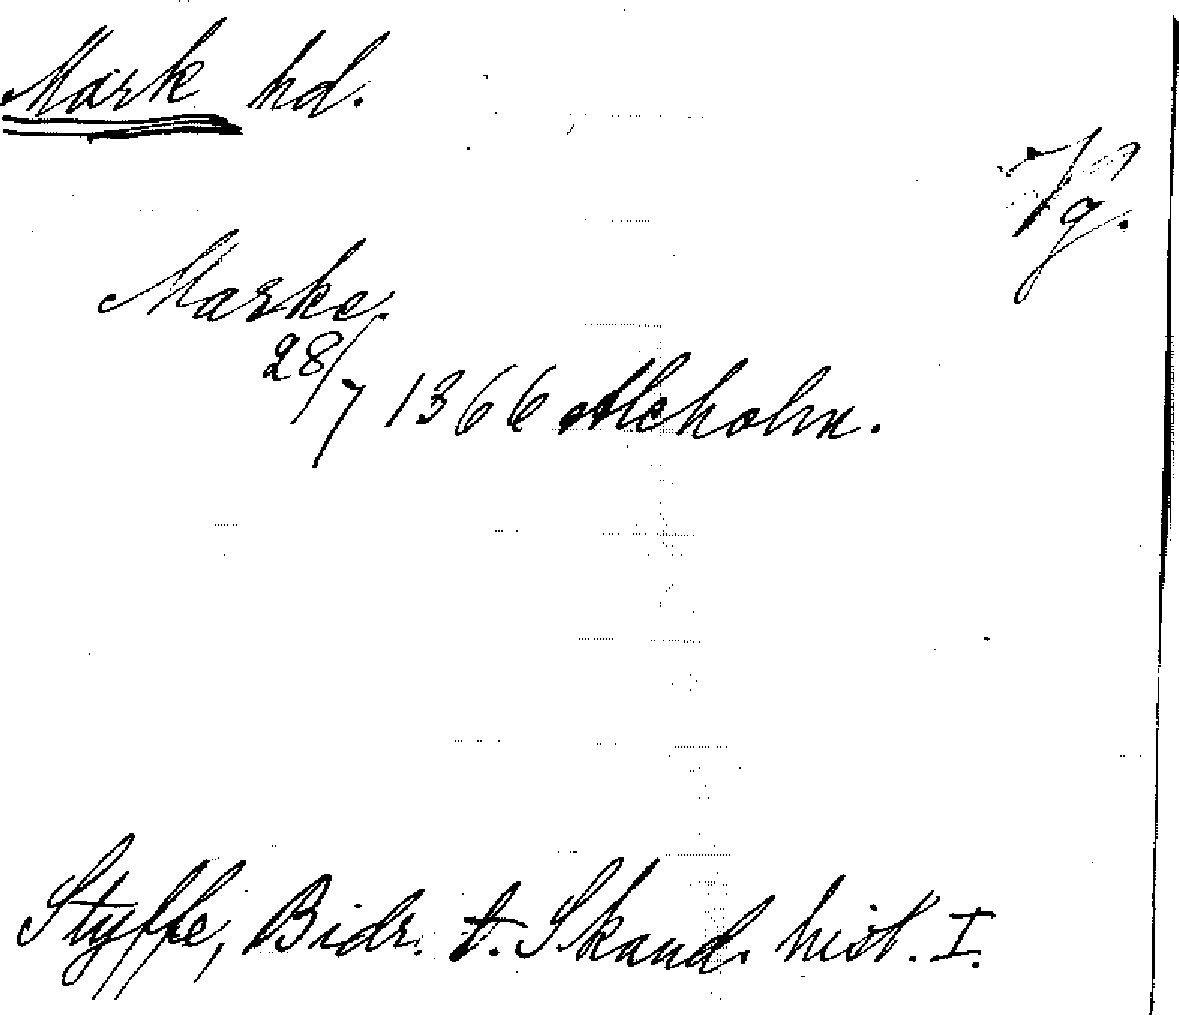 Mark hd.
Vg.
Marke.
28/7 1366 Alcholm.
Styffe, Bidr. t. Skand. hist. I.